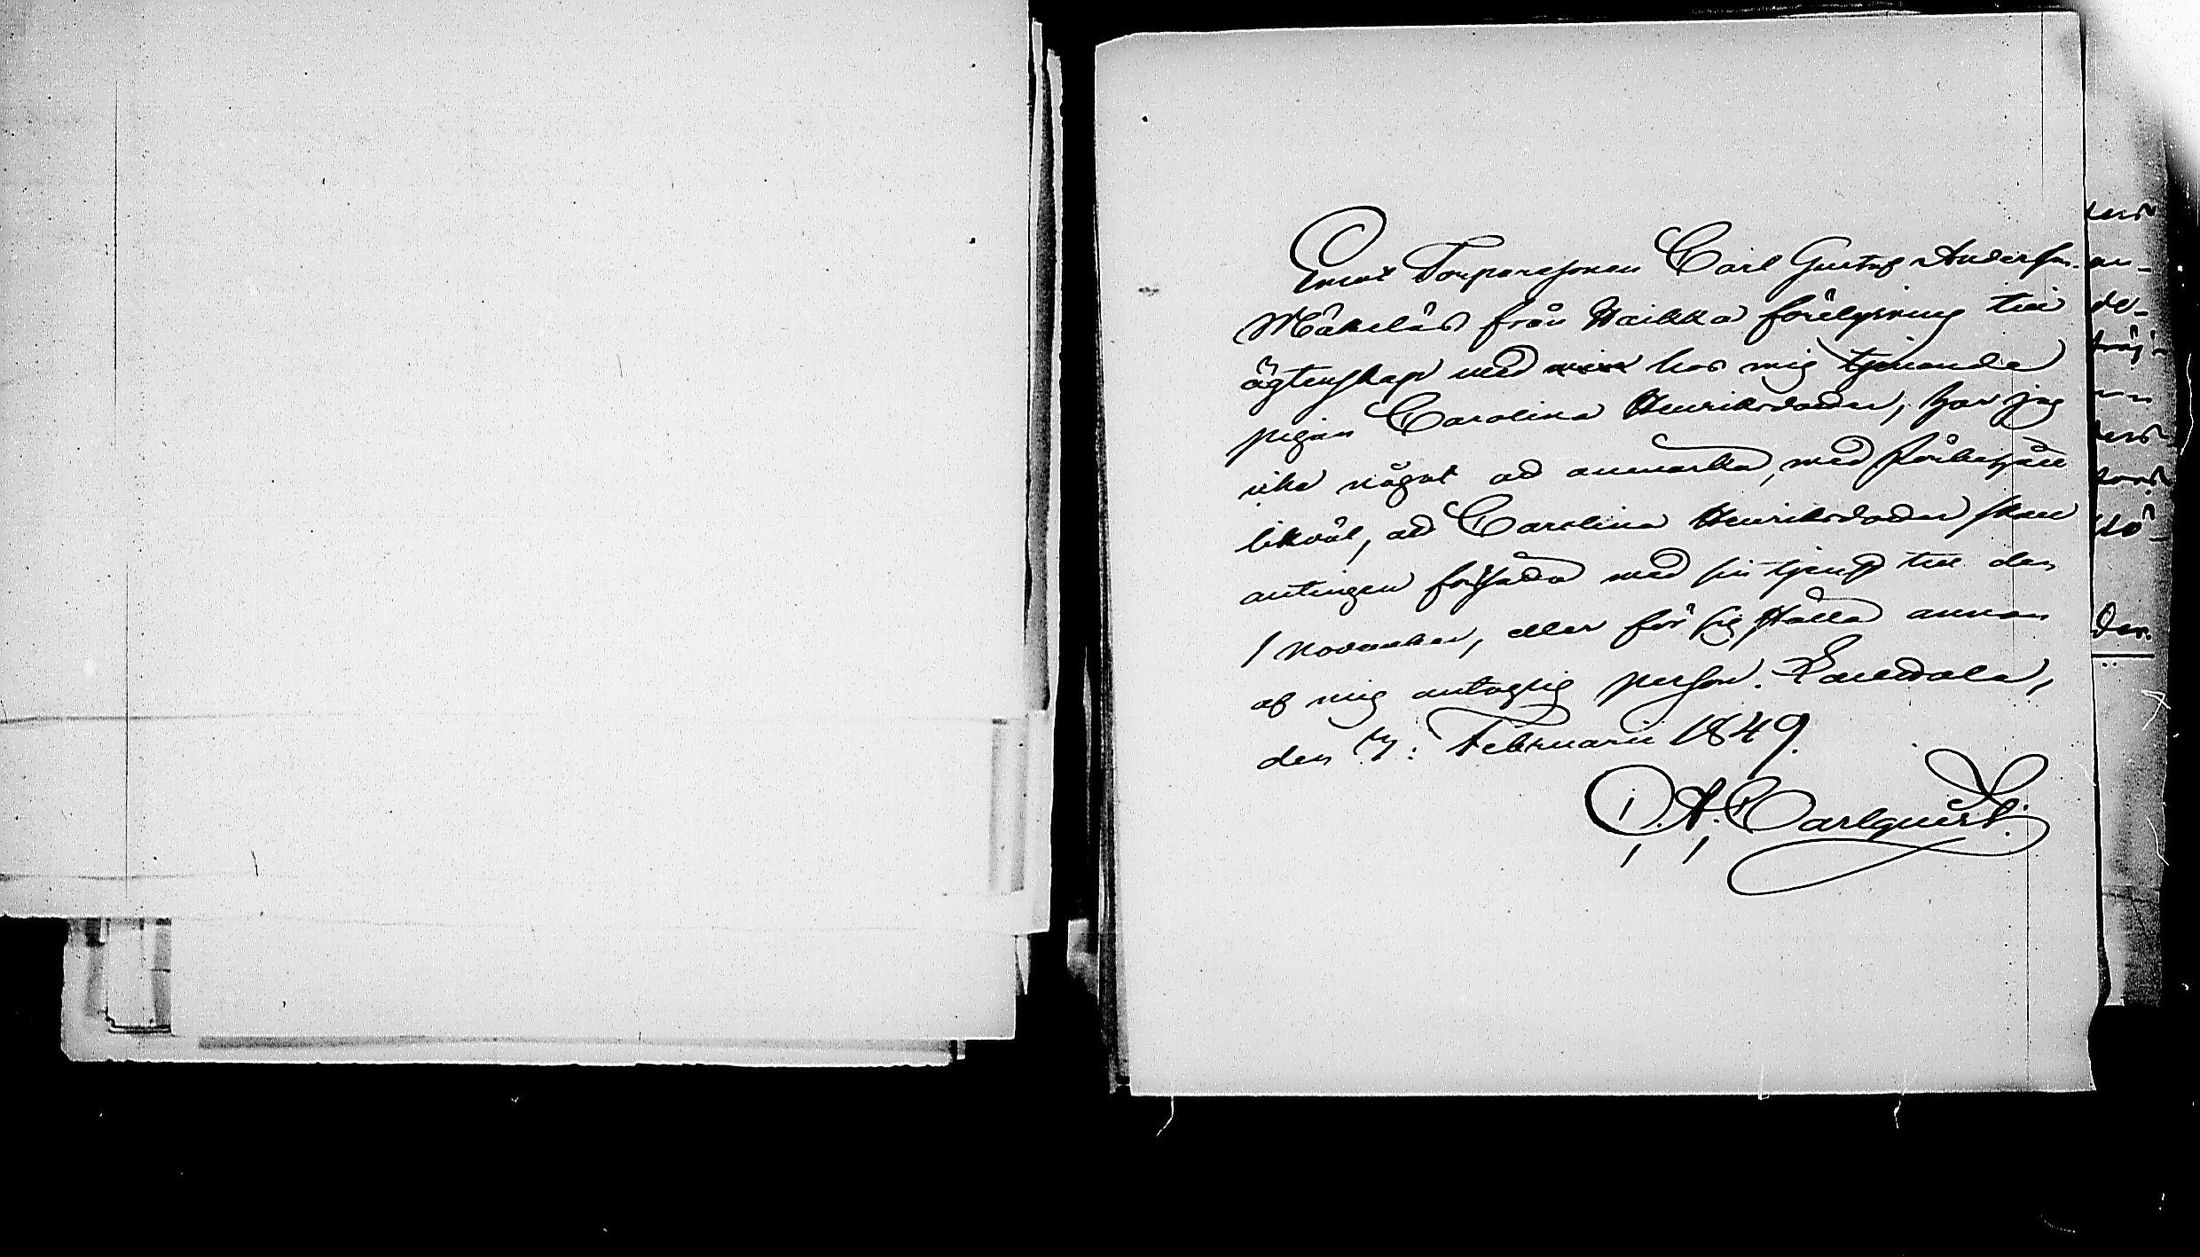 Emot Torparesonen Carl Gustaf Andersson
Mäkeläs från Haikka förelysning till
ägtenskap med hos mig tjenande
pigan Carolina Henriksdotter, har jag
icke något ad anmärka, med förbehåll
likväl, ad Carolina Henriksdotter skall
antingen fortfara med sin tjenst till den
1 November, eller för sig ställa annan
af mig antaglig person. Laukkala,
den 7: Februarii 1849.
A. Carlquist.